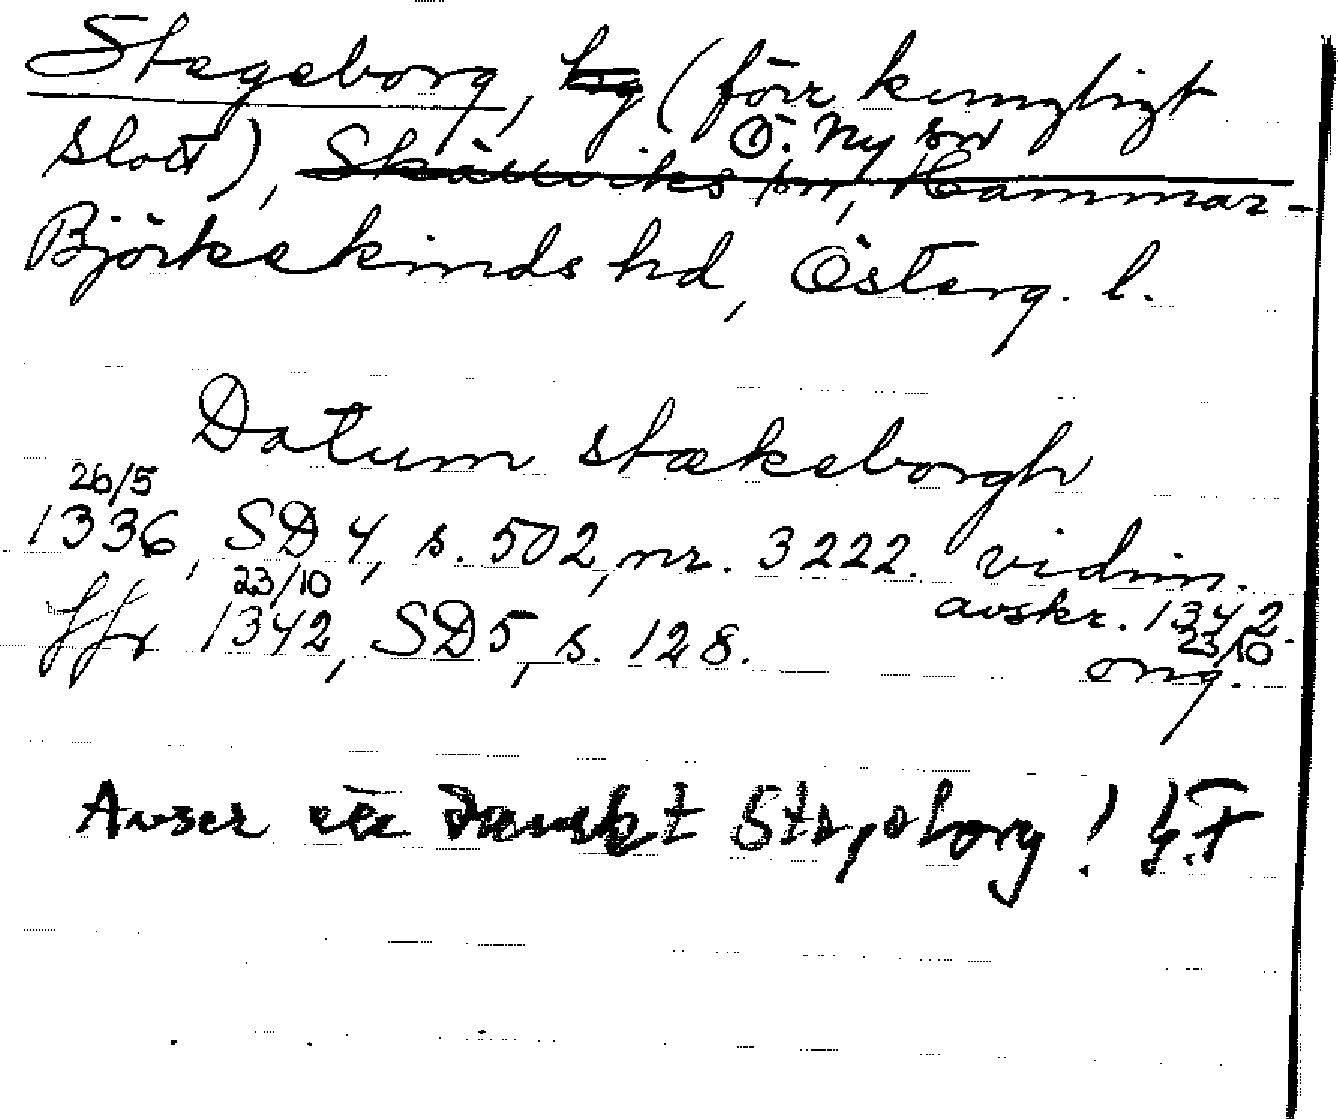 Stegeborg, hg (förr kungligt
Ö. Ny sn
slott), Skällviks sn, Hammar-
Björkekinds hd, Österg. l.
Datum stækeborgh
26/5
1336, SD 4, s. 502, nr. 3222. vidim.
avskr. 1342
23/10
23/10
Jfr 1342, SD5, s. 128.
orig.
Avser ett danskt Stegeborg!